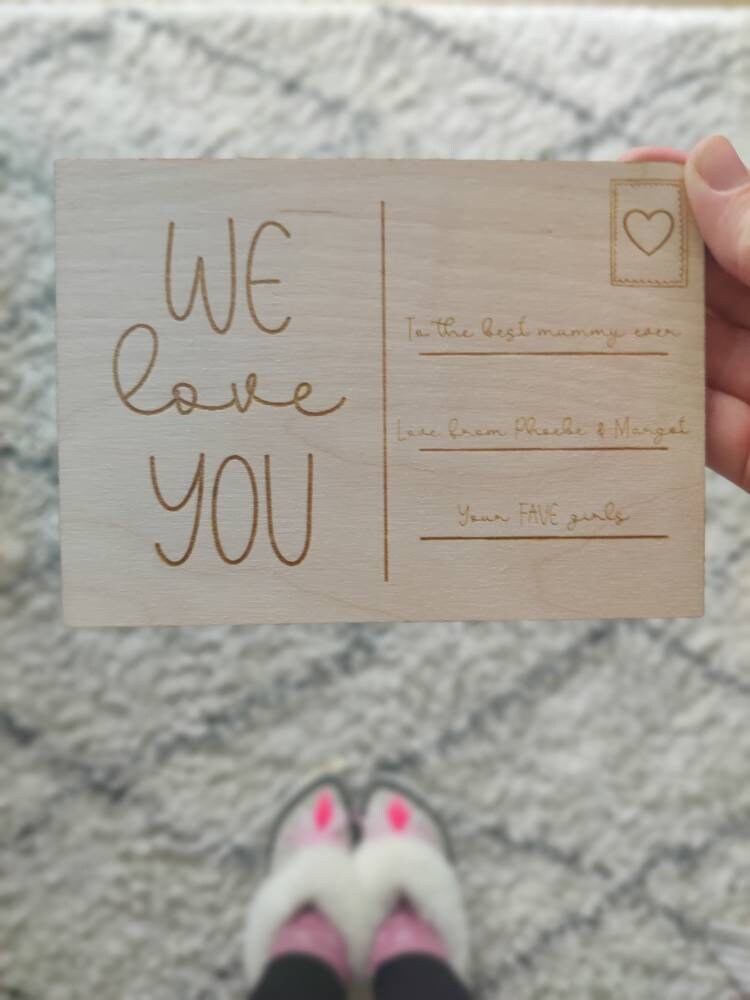 WE
love
YOU
To the best mummy ever
Love from Phoebe & Margot
Your FAVE girls